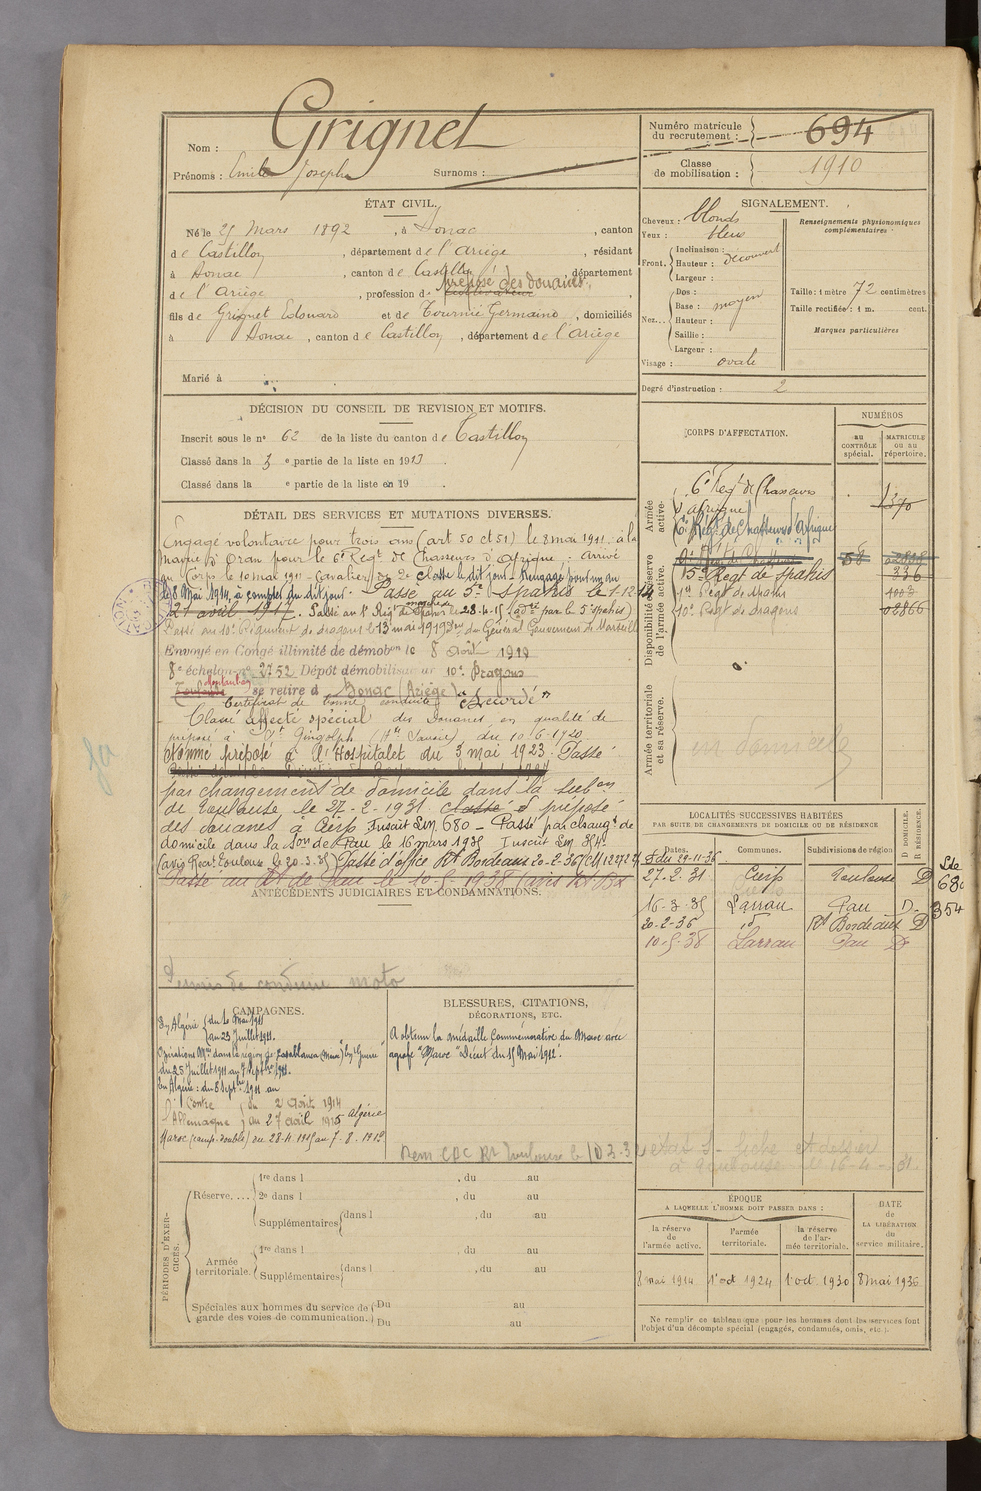 Nom : Grignet
Prénoms : Emile Joseph Surnoms :
Numéro matricule du recrutement : 694
Classe de mobilisation : 1910
ÉTAT CIVIL.
Né le 25 Mars 1892, à Bonac, canton
de Castillon, département de l'Ariège, résidant
à Bonac, canton de Castillon, département
de l'Ariège, profession de préposé des douanes,
fils de Grignet Edouard et de Tournié Germaine, domiciliés
à Bonac, canton de Castillon, département de l'Ariège
Marié à
SIGNALEMENT.
Cheveux : blonds
Yeux : bleus
Front. Inclinaison :
Hauteur : découvert
Largeur :
Nez... Dos :
Base : moyen
Hauteur :
Saillie :
Largeur :
Visage : ovale
Renseignements physionomiques complémentaires
Taille : 1 mètre 72 centimètres
Taille rectifiée : 1 m. cent.
Marques particulières
Degré d'instruction : 2
DÉCISION DU CONSEIL DE REVISION ET MOTIFS.
Inscrit sous le n° 62 de la liste du canton de Castillon
Classé dans la 3 e partie de la liste en 1913.
Classé dans la e partie de la liste en 19 .
DÉTAIL DES SERVICES ET MUTATIONS DIVERSES.
Engagé volontaire pour trois ans (art 50 et 51) le 8 mai 1911 à la
mairie d'Oran pour le 6e Regt de Chasseurs d'Afrique. Arrivé
au Corps le 10 mai 1911 - Cavalier de 2e classe le dit jour - Rengagé pour un an
le 8 Mai 1914, à compter du dit jour. Passé au 5e Spahis le 1-12-14
21 avril 1917. Passé au 1r Regt de marche de Spahis le 28.4.15 (adré par le 5e Spahis)
Passé au 10e Régiment de dragons le 13 mai 1919 Don du Général Gouverneur de Marseille
Envoyé en Congé illimité de démobon le 8 Août 1919
8e échelon n° 2752 Dépôt démobilisateur 10e Dragons
Toulouse Montauban se retire à Bonac (Ariège)
Certificat de bonne conduite "Accordé"
Classé affecté spécial des Douanes en qualité de
préposé à St Gingolph (Hte Savoie), du 10-6-1920
Nommé préposé à l'Hospitalet du 3 mai 1923. Passé
par changement de domicile dans la subon
de Toulouse le 27-2-1931 classé préposé
des douanes à Cierp Inscrit Lm 680 - Passé par changt de
domicile dans la Son de Pau le 16 mars 1935 Inscrit Lm 354.
(avis Recrt Toulouse le 20-3-35) Passé d'office Rt Bordeaux 20-2-36
Passé au Rt de Pau le 10-5-1938 (avis Rt Bx
ANTÉCÉDENTS JUDICIAIRES ET CONDAMNATIONS.
Permis de conduire moto
CORPS D'AFFECTATION.
NUMÉROS
AU CONTRÔLE spécial.
MATRICULE ou au répertoire.
Armée active.
6e Regt de Chasseurs d'Afrique 1370
6e Regt de Chasseurs d'Afrique
Disponibilité et réserve de l'armée active.
58
5e Regt de Spahis 236
1er Regt de Spahis 1003
10e Regt de Dragons 02866
Armée territoriale et sa réserve.
un domicile
LOCALITÉS SUCCESSIVES HABITÉES
PAR SUITE DE CHANGEMENTS DE DOMICILE OU DE RÉSIDENCE
Dates. Communes. Subdivisions de région D DOMICILE. R RÉSIDENCE.
27.2.31 Cierp Toulouse D 680
16-3-35 Larrau Pau D. 354
20-2-36 id Rt Bordeaux D
10-5-38 Larrau Pau D
CAMPAGNES.
En Algérie du 10 Mai 1911
au 23 Juillet 1911.
Opérations Mres dans la région de Casablanca (Maroc) "en guerre"
du 25 Juillet 1911 au 7 Septbre 1911.
En Algérie : du 8 Septbre 1911 au
Contre l'Allemagne du 2 Août 1914
au 27 avril 1915 Algérie
Maroc (camp. double) du 28-4-1915 au 7-8-1919
BLESSURES, CITATIONS,
DÉCORATIONS, ETC.
A obtenu la médaille Commémorative du Maroc avec
agrafe "Maroc" Décret du 15 Mai 1912.
PÉRIODES D'EXERCICES.
Réserve....
1re dans l , du au
2e dans l , du au
Supplémentaires dans l , du au
Armée territoriale.
1re dans l , du au
Supplémentaires dans l , du au
Spéciales aux hommes du service de garde des voies de communication.
Du au
Du au
ÉPOQUE
A LAQUELLE L'HOMME DOIT PASSER DANS :
la réserve de l'armée active.
l'armée territoriale.
la réserve de l'armée territoriale.
DATE de LA LIBÉRATION du service militaire.
8 mai 1914 1r oct 1924 1r oct. 1930 8 Mai 1936
Ne remplir ce tableau que pour les hommes dont les services font
l'objet d'un décompte spécial (engagés, condamnés, omis, etc.).